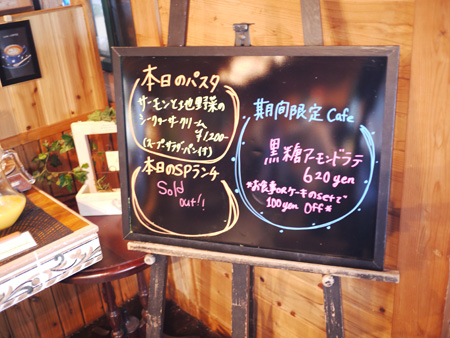 本日のパスタ
サーモンと地野菜の
シークヮーサークリーム
¥1,200-
(スープ・サラダ・パン付)
本日のSPランチ
Sold
out!!
期間限定 Cafe
黒糖アーモンドラテ
620yen
*お食事ORケーキのsetで
100yen Off*